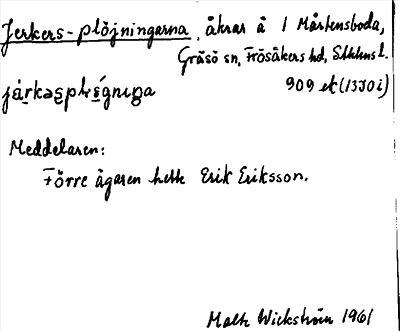 Jerkers-plöjningarna, åkrar å 1 Mårtensboda,
Gräsö sn, Frösåkers hd, Sthlms l.
909 et (13J0i)
Meddelaren:
Förre ägaren hette Erik Eriksson.
Malte Wickström 1961